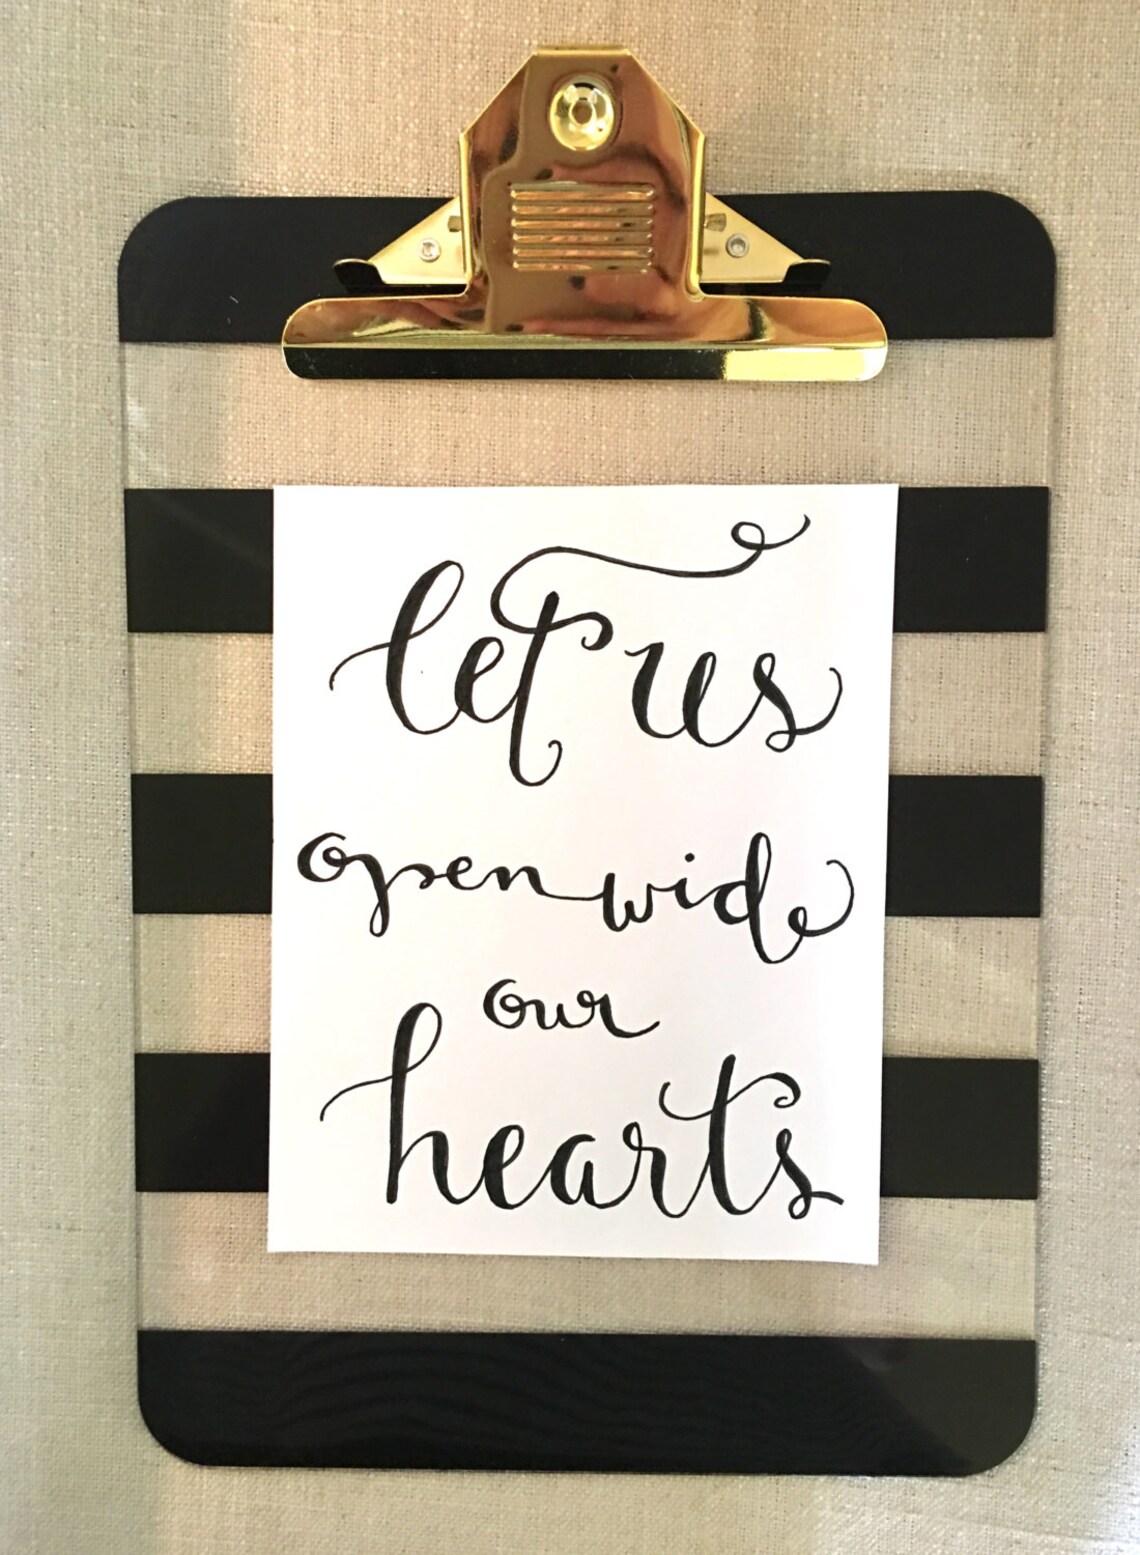 let us
open wide
our
hearts